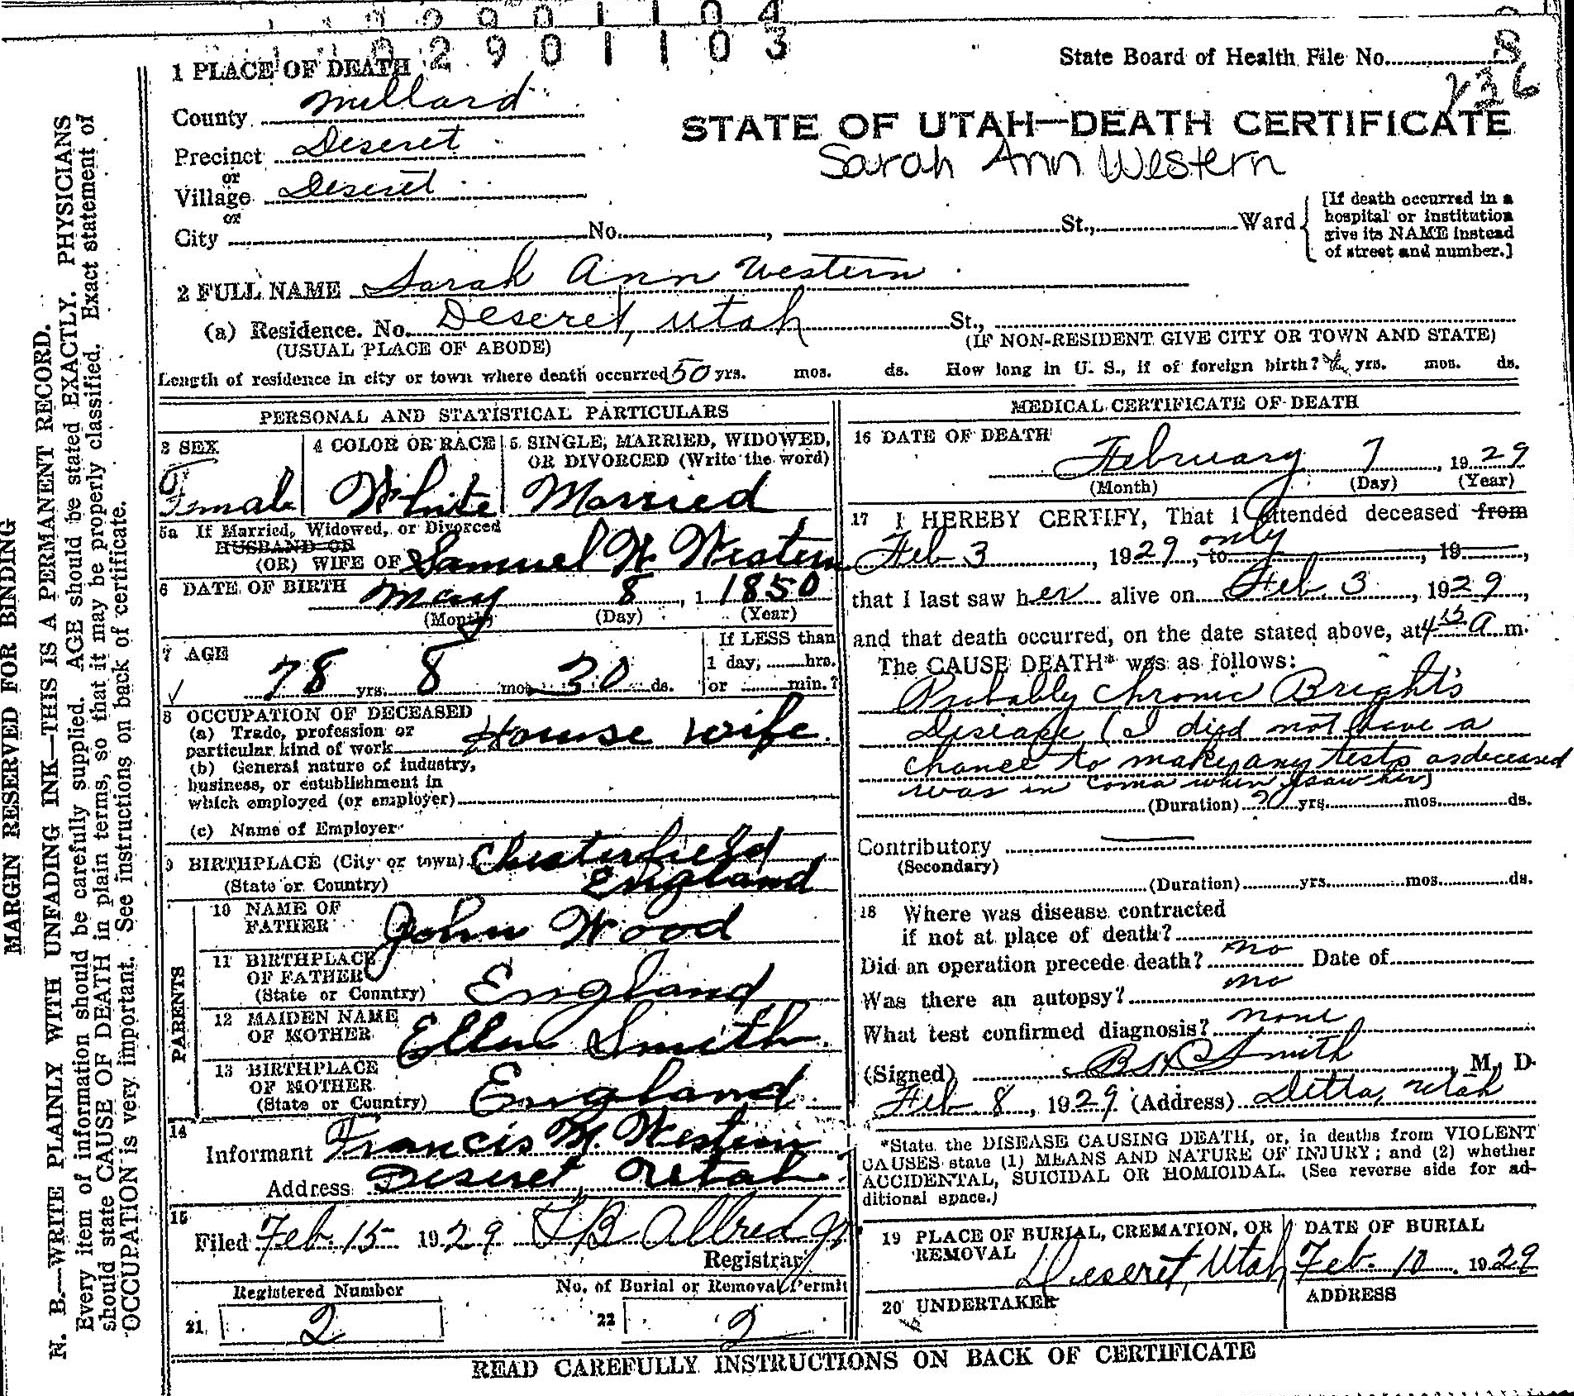 2901104
02901103
State Board of Health File No. 8
236
1 PLACE OF DEATH
County Millard
Precinct Deseret
or
Village Deseret
or
City No. , St., Ward
STATE OF UTAH—DEATH CERTIFICATE
Sarah Ann Western
[If death occurred in a
hospital or institution
give its NAME instead
of street and number.]
2 FULL NAME Sarah Ann Western
(a) Residence. No. Deseret, Utah St.,
(USUAL PLACE OF ABODE) (IF NON-RESIDENT GIVE CITY OR TOWN AND STATE)
Length of residence in city or town where death occurred 50 yrs. mos. ds. How long in U. S., if of foreign birth? yrs. mos. ds.
PERSONAL AND STATISTICAL PARTICULARS
3 SEX
Female
4 COLOR OR RACE
White
5. SINGLE, MARRIED, WIDOWED,
OR DIVORCED (Write the word)
Married
5a If Married, Widowed, or Divorced
HUSBAND OR
(OR) WIFE OF Samuel W Western
6 DATE OF BIRTH May 8, 1 1850
(Month) (Day) (Year)
7 AGE
78 yrs. 8 mos 30 ds.
If LESS than
1 day, hrs.
or min.?
8 OCCUPATION OF DECEASED
(a) Trade, profession or
particular kind of work House wife.
(b) General nature of industry,
business, or establishment in
which employed (or employer)
(c) Name of Employer
9 BIRTHPLACE (City or town) Chesterfield
(State or Country) England
PARENTS
10 NAME OF
FATHER John Wood
11 BIRTHPLACE
OF FATHER
(State or Country) England
12 MAIDEN NAME
OF MOTHER Ellen Smith.
13 BIRTHPLACE
OF MOTHER
(State or Country) England.
14
Informant Francis M. Western
Address Deseret, Utah
15
Filed Feb 15 1929 Allred Jr
Registrar
Registered Number
21. 2
No. of Burial or Removal Permit
22 2
MEDICAL CERTIFICATE OF DEATH
16 DATE OF DEATH
February 7, 1929
(Month) (Day) (Year)
17 I HEREBY CERTIFY, That I attended deceased from
Feb 3, 1929, to only, 19,
that I last saw her alive on Feb. 3, 1929,
and that death occurred, on the date stated above, at 4 15 A m.
The CAUSE DEATH* was as follows:
Probably Chronic Bright's
Disease (I died not have a
chance to make any tests as deceased
was in coma when I saw her)
(Duration) ? yrs. mos. ds.
Contributory
(Secondary)
(Duration) yrs. mos. ds.
18 Where was disease contracted
if not at place of death?
Did an operation precede death? no Date of
Was there an autopsy? no
What test confirmed diagnosis? none
(Signed) Smith M. D.
Feb 8, 1929 (Address) Delta, Utah
*State the DISEASE CAUSING DEATH, or, in deaths from VIOLENT
CAUSES state (1) MEANS AND NATURE OF INJURY; and (2) whether
ACCIDENTAL, SUICIDAL OR HOMICIDAL. (See reverse side for ad-
ditional space.)
19 PLACE OF BURIAL, CREMATION, OR
REMOVAL Deseret, Utah
DATE OF BURIAL
Feb. 10. 1929
20 UNDERTAKER
ADDRESS
READ CAREFULLY INSTRUCTIONS ON BACK OF CERTIFICATE
MARGIN RESERVED FOR BINDING
N. B.—WRITE PLAINLY WITH UNFADING INK—THIS IS A PERMANENT RECORD.
Every item of information should be carefully supplied. AGE should be stated EXACTLY. PHYSICIANS
should state CAUSE OF DEATH in plain terms, so that it may be properly classified. Exact statement of
OCCUPATION is very important. See instructions on back of certificate.